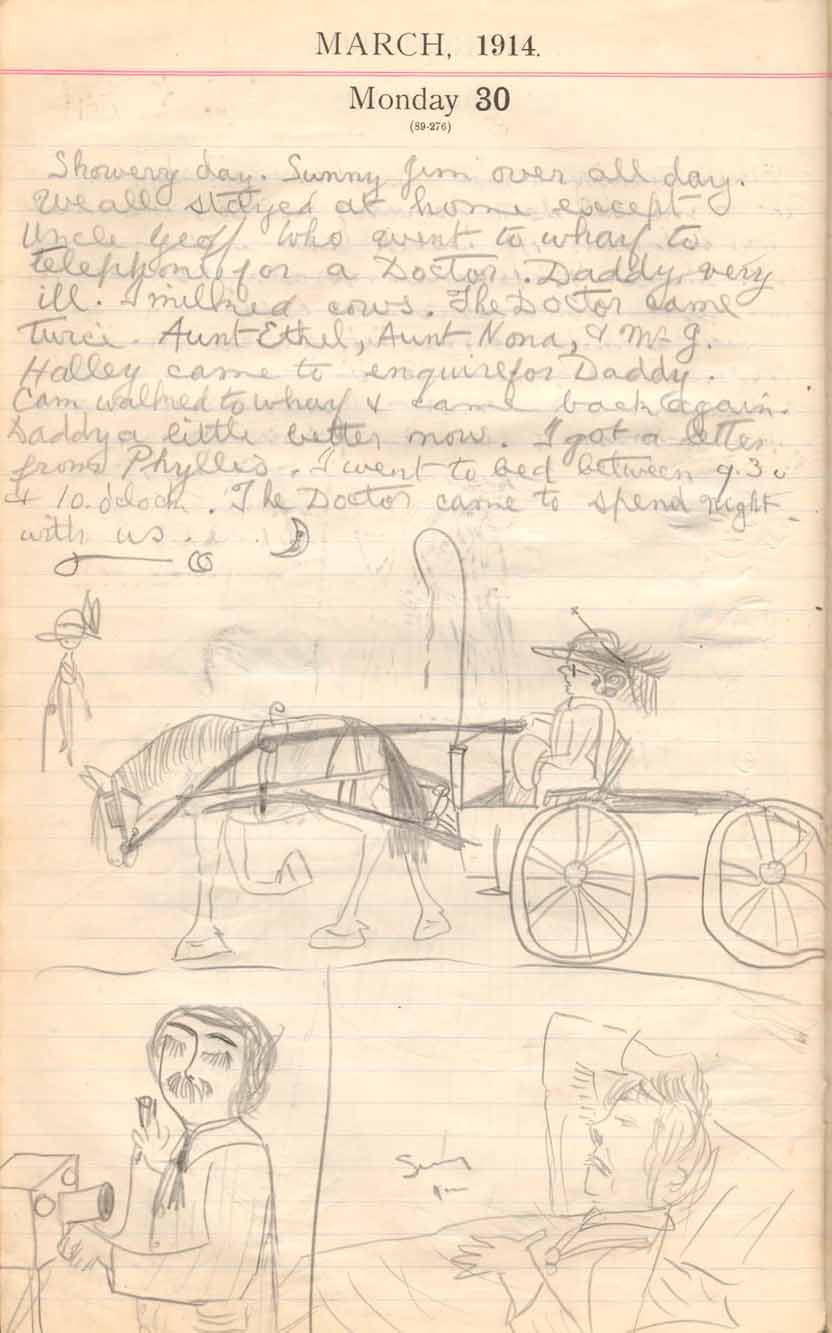 MARCH, 1914.
Monday 30
(89-276)
Showery day. Sunny Jim over all day.
We all stayed at home except
Uncle Geoff who went to wharf to
telephone for a Doctor. Daddy very
ill. I milked cows. The Doctor came
twice. Aunt Ethel, Aunt Nona, & Mr G.
Halley came to enquire for Daddy.
Cam walked to wharf & came back again.
Daddy a little better now. I got a letter
from Phyllis. I went to bed between 9.30
& 10. o'clock. The Doctor came to spend night
with us.